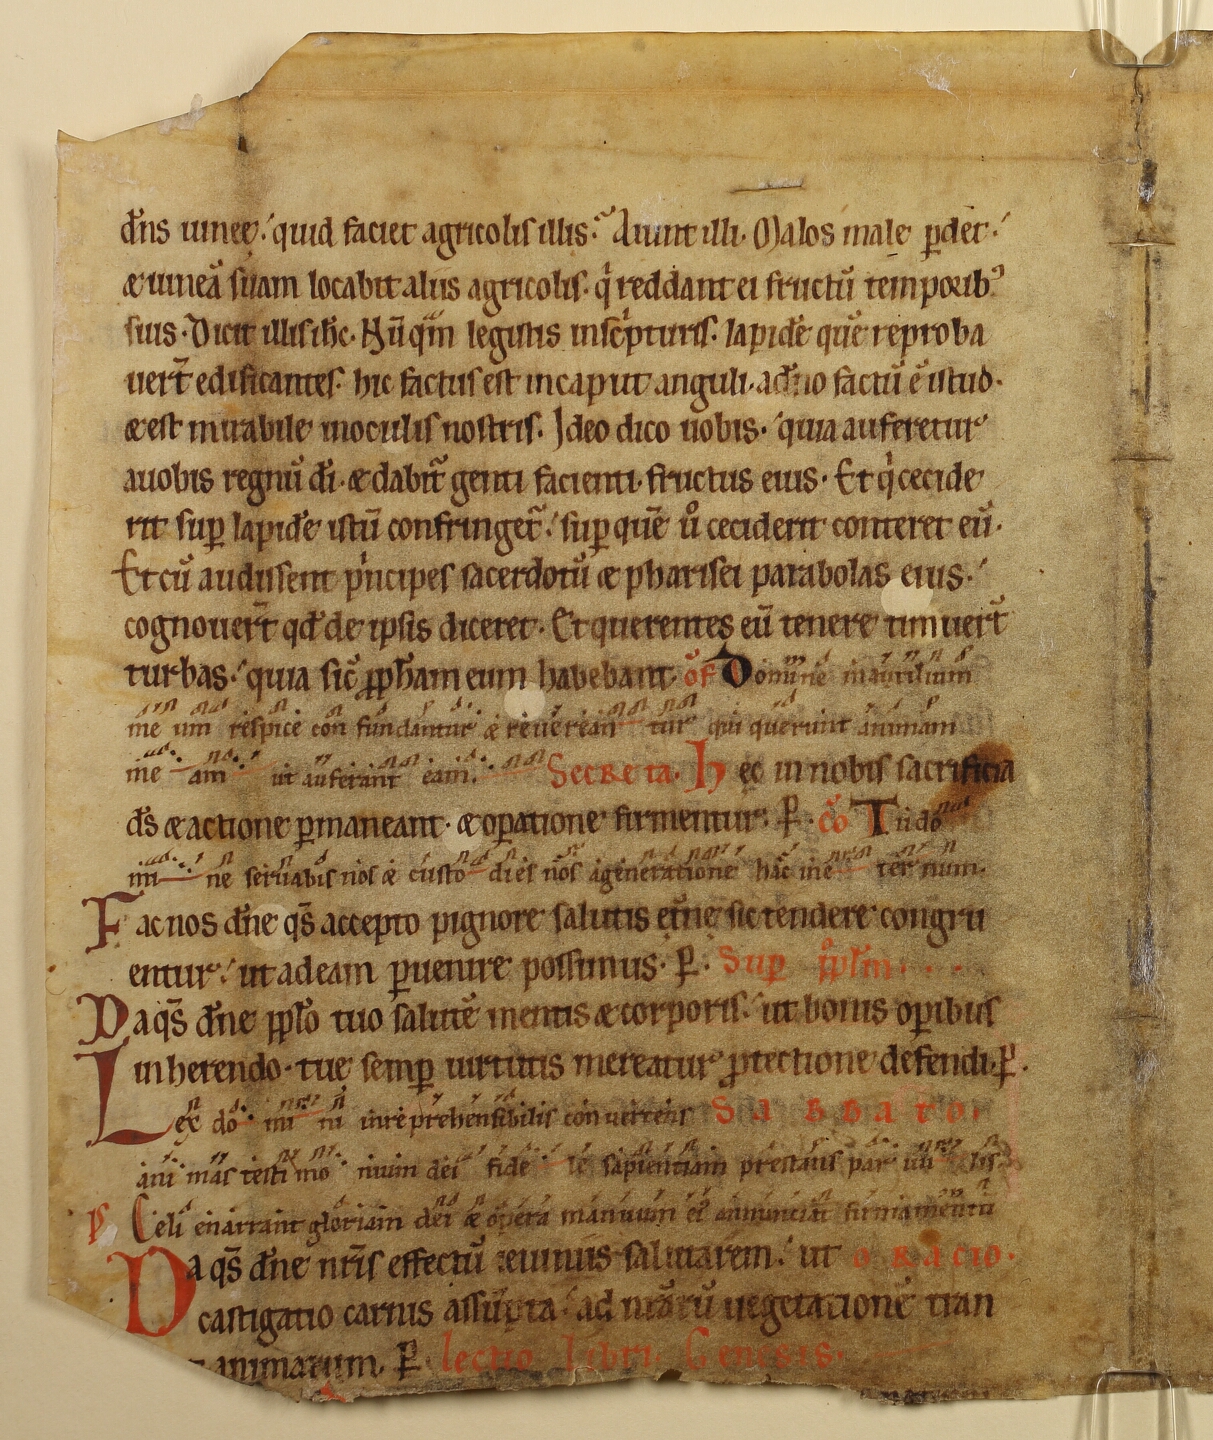 dn̄s uineę. quid faciet agricolis illis. Aiunt illi. Malos male ꝑdet.
& uineā suam locabit aliis agricolis. qͥ reddant ei fructū temporibꝰ
suis. Dicit illis ihc̄. Nū qm̄ legistis inscͥpturis. lapidē quē reproba
uer̄t edificantes. hic factus est incaput anguli. adn̄o factū ē istud.
& est mirabile inoculis nostris. Ideo dico uobis. quia auferetur
auobis regnū dī. & dabit̄ genti facienti fructus eius. Et qͥ cecide
rit suꝑ lapidē istū confringet̄. suꝑ quē ů ceciderit conteret eū.
Et cū audissent pͥncipes sacerdotū & pharisei parabolas eius.
cognouer̄t qd̄ de ipsis diceret. Et querentes eū tenere timuer̄t
turbas. quia sic̄ ꝓpham eum habebant. of̄ Domine inauxilium
me um respice con fundantur & reuerean tur qui querunt animam
me am ut auferant eam. Secreta. Hęc in nobis sacrificia
ds̄ & actione ꝑmaneant. & oꝑatione firmentur. ꝑ. cō Tu do
mi ne seruabis nos & custo dies nos ageneratione hac ine ter num.
Fac nos dn̄e qs̄ accepto pignore salutis eternę sic tendere congru
enter. ut adeam ꝑuenire possimus. ꝑ. Suꝑ ppl̄m.
Da qs̄ dn̄e ppl̄o tuo salutē mentis & corporis. ut bonis oꝑibus
inherendo. tuę semꝑ uirtutis mereatur ꝓtectione defendi. ꝑ.
Lex do mi ni inreprehensibilis conuertens SABBATO.
ani mas testi mo nium dei fide le sapientiam prestans par uu lis.
ps Celi enarrant gloriam dei & opera manuum ei annunciat firmamentū
Da qs̄ dn̄e nr̄is effectū ieiuniis salutarem. ut ORACIO.
castigatio carnis assūpta. ad nr̄arū uegetationē tran
animarum. ꝑ. Lectio Libri Genesis.